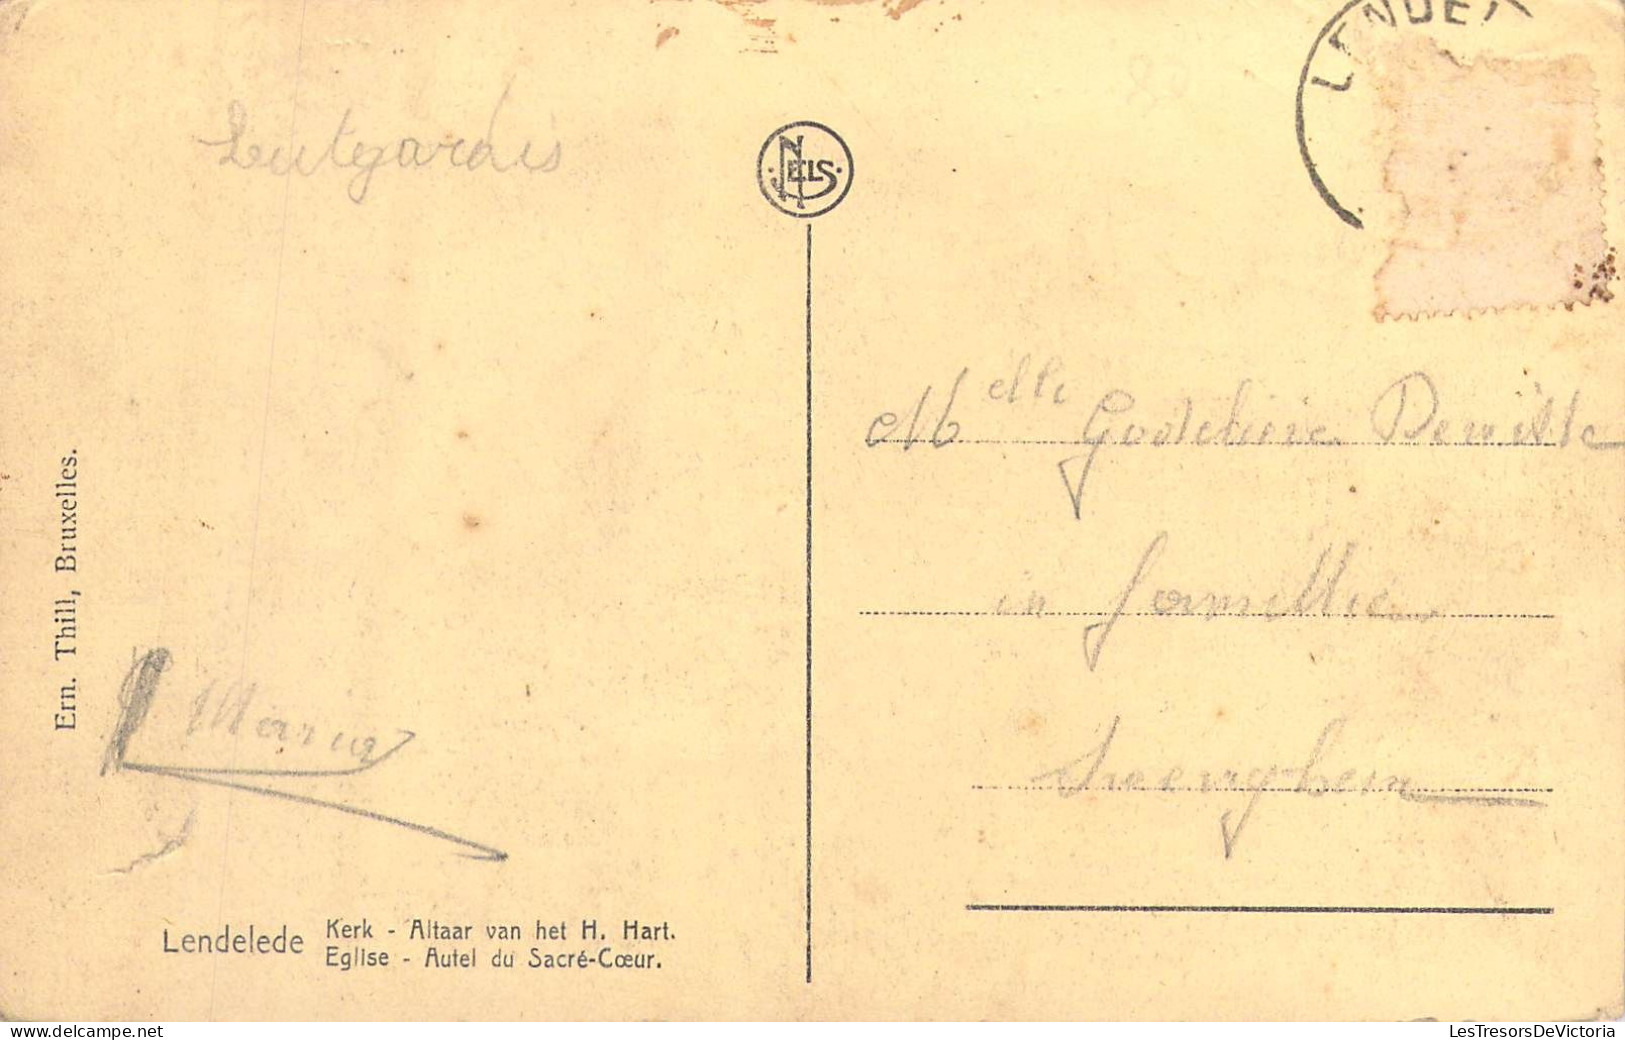 LENDE
Lutgardis
NELS
Melle Godelieve Dewitte
in famillie
Sweveghem
Ern. Thill, Bruxelles.
Maria
Lendelede Kerk - Altaar van het H. Hart.
Eglise - Autel du Sacré-Cœur.
LesTresorsDeVictoria